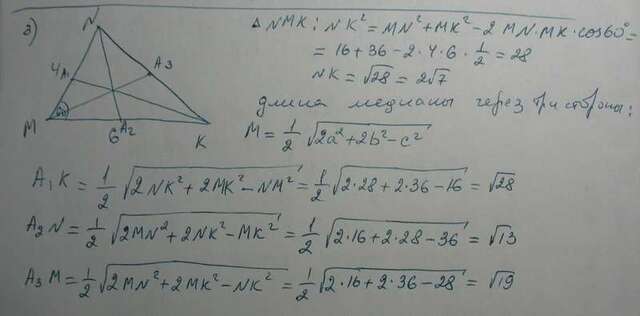 3)
N
4
A₁
A₃
60°
M
6
A₂
K
△ NMK: NK² = MN² + MK² - 2 MN·MK·cos60° =
= 16 + 36 - 2·4·6·1/2 = 28
NK = √28 = 2√7
длина медианы через три стороны:
M = 1/2 √(2a² + 2b² - c²)
A₁K = 1/2 √(2NK² + 2MK² - NM²) = 1/2 √(2·28 + 2·36 - 16) = √28
A₂N = 1/2 √(2MN² + 2NK² - MK²) = 1/2 √(2·16 + 2·28 - 36) = √13
A₃M = 1/2 √(2MN² + 2MK² - NK²) = 1/2 √(2·16 + 2·36 - 28) = √19